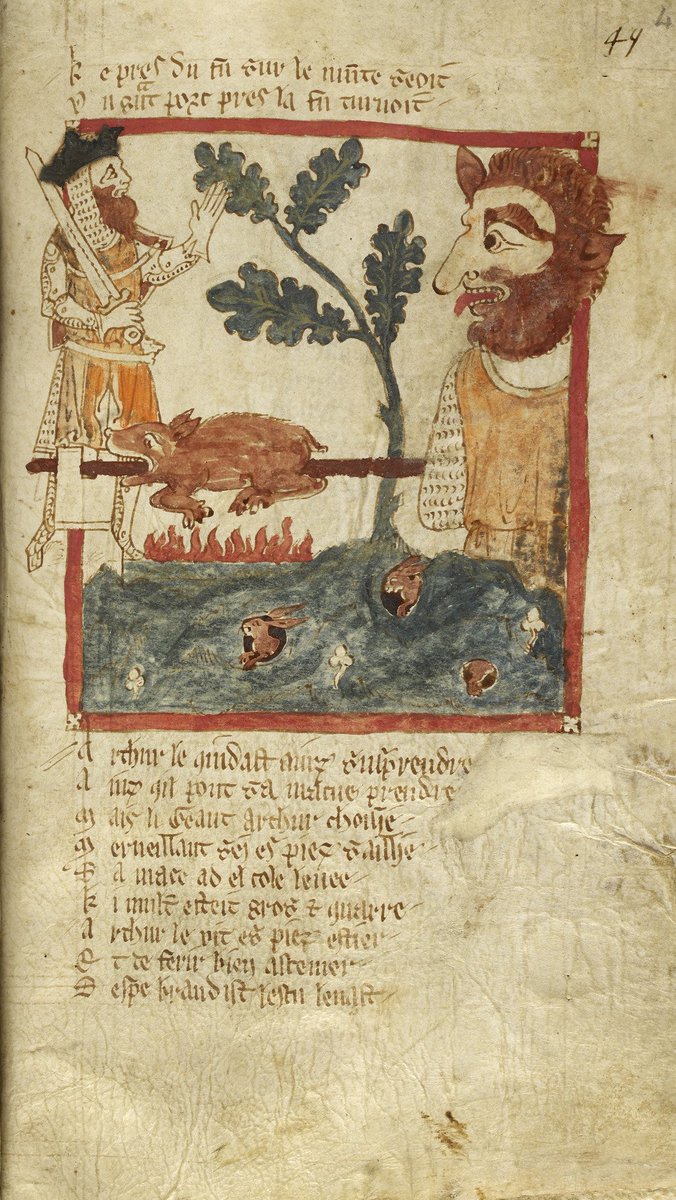 44
4
k e pres du fu sur le munte seoit
U n gᵃt porc pres la fu turnoit
A rthur le quidast auiz surprendre
A inz qil pout sa mache prendre
M ais li Geant Arthur choisie
M erueillant sei es piez saillie
S a mace ad el cole leuee
k i mult esteit gros & quarre
A rthur le vit es piez ester
E t de ferir bien astemer
S espe brandist lescu leuast